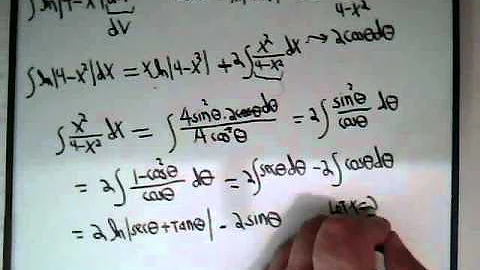 ∫ln|4-x²|dx
dV
4-x²
∫ln|4-x²|dx = xln|4-x²| + 2∫x²/(4-x²) dx → 2cosθdθ
∫x²/(4-x²) dx = ∫4sin²θ·2cosθdθ/(4cos²θ) = 2∫sin²θ/cosθ dθ
= 2∫(1-cos²θ)/cosθ dθ = 2∫secθdθ - 2∫cosθdθ
= 2ln|secθ+tanθ| - 2sinθ Let x=2